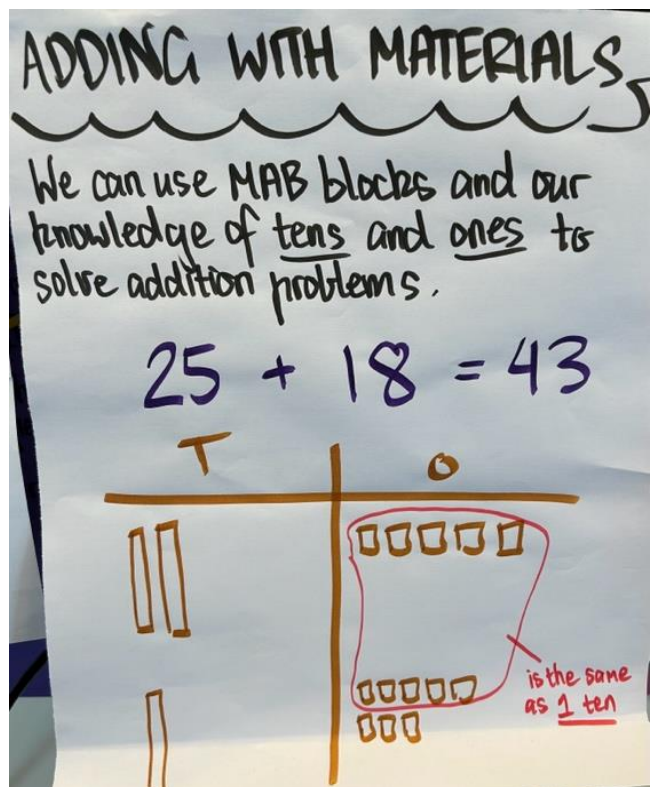 ADDING WITH MATERIALS
We can use MAB blocks and our
knowledge of tens and ones to
solve addition problems.
25 + 18 = 43
T O
is the same
as 1 ten